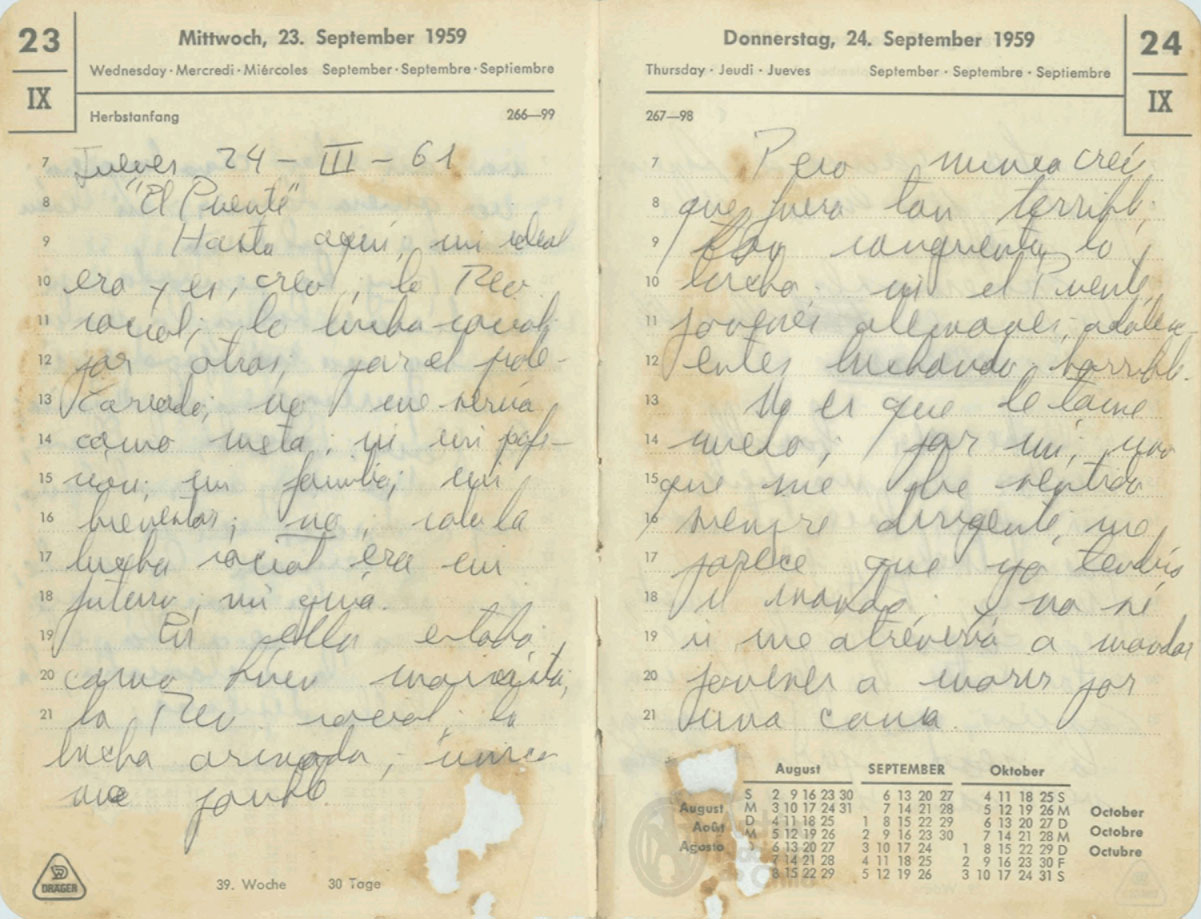 23
IX
Mittwoch, 23. September 1959
Wednesday · Mercredi · Miércoles September · Septembre · Septiembre
Herbstanfang 266—99
7 Jueves 24 - III - 61
8 "El Puente"
9 Hasta aquí, mi ideal
10 era y es, creo, la Rev.
11 social; la lucha social;
12 por otros; por el prole-
13 tariado; no me servía
14 como meta; ni mi profe-
15 sion; mi familia; mi
16 bienestar; no; solo la
17 lucha social era mi
18 futuro; mi guía.
19 En ella estaba,
20 como buen marxista,
21 la Rev social: la
lucha armada,; única
posible
DRÄGER
39. Woche 30 Tage
24
IX
Donnerstag, 24. September 1959
Thursday · Jeudi · Jueves September · Septembre · Septiembre
267—98
7 Pero nunca creí
8 que fuera tan terrible;
9 tan sangrienta la
10 lucha. vi el Puente,
11 jovenes alemanes, adolesc
12 entes luchando horrible.
13 No es que le tome
14 miedo; por mi; uno
15 que me he sentido
16 siempre dirigente, me
17 parece que yo tendría
18 mando; y no sé
19 si me atrevería a mandar
20 jovenes a morir por
21 una causa.
August SEPTEMBER Oktober
S 2 9 16 23 30 6 13 20 27 4 11 18 25 S
August M 3 10 17 24 31 7 14 21 28 5 12 19 26 M October
Août D 4 11 18 25 1 8 15 22 29 6 13 20 27 D Octobre
M 5 12 19 26 2 9 16 23 30 7 14 21 28 M
Agosto 6 13 20 27 3 10 17 24 1 8 15 22 29 D Octubre
7 14 21 28 4 11 18 25 2 9 16 23 30 F
8 15 22 29 5 12 19 26 3 10 17 24 31 S